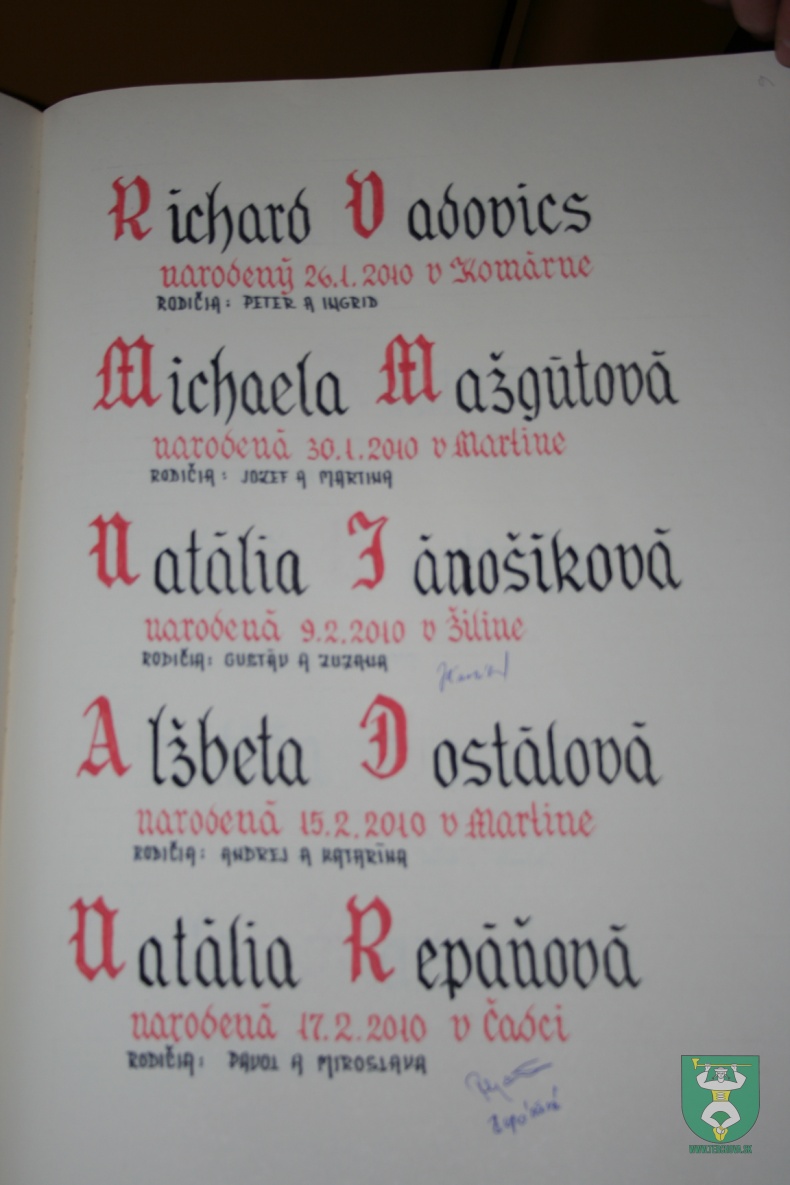 Richard Vadovics
narodený 26.1.2010 v Komárne
RODIČIA: PETER A INGRID
Michaela Mažgútová
narodená 30.1.2010 v Martine
RODIČIA: JOZEF A MARTINA
Natália Jánošíková
narodená 9.2.2010 v Žiline
RODIČIA: GUSTÁV A ZUZANA
Alžbeta Dostálová
narodená 15.2.2010 v Martine
RODIČIA: ANDREJ A KATARÍNA
Natália Repáňová
narodená 17.2.2010 v Čadci
RODIČIA: PAVOL A MIROSLAVA
WWW.TERCHOVA.SK